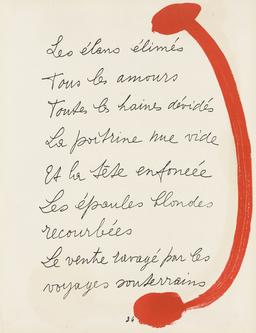 Les élans élimés
Tous les amours
Toutes les haines dévidés
La poitrine nue vide
Et la tête enfoncée
Les épaules blondes
recourbées
Le ventre ravagé par les
voyages souterrains
24